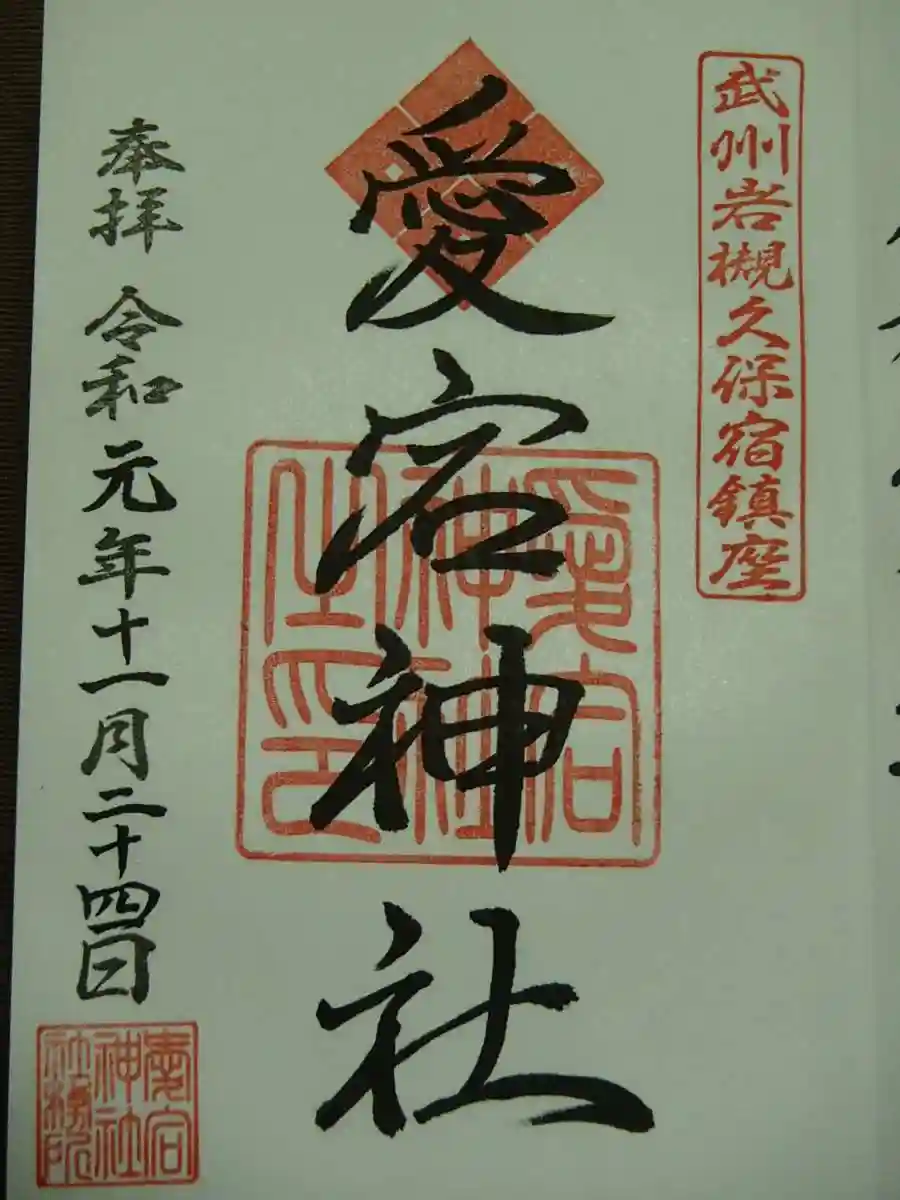 武州岩槻久保宿鎮座
愛宕神社
愛宕神社之印
奉拝 令和元年十一月二十四日
愛宕神社社務所